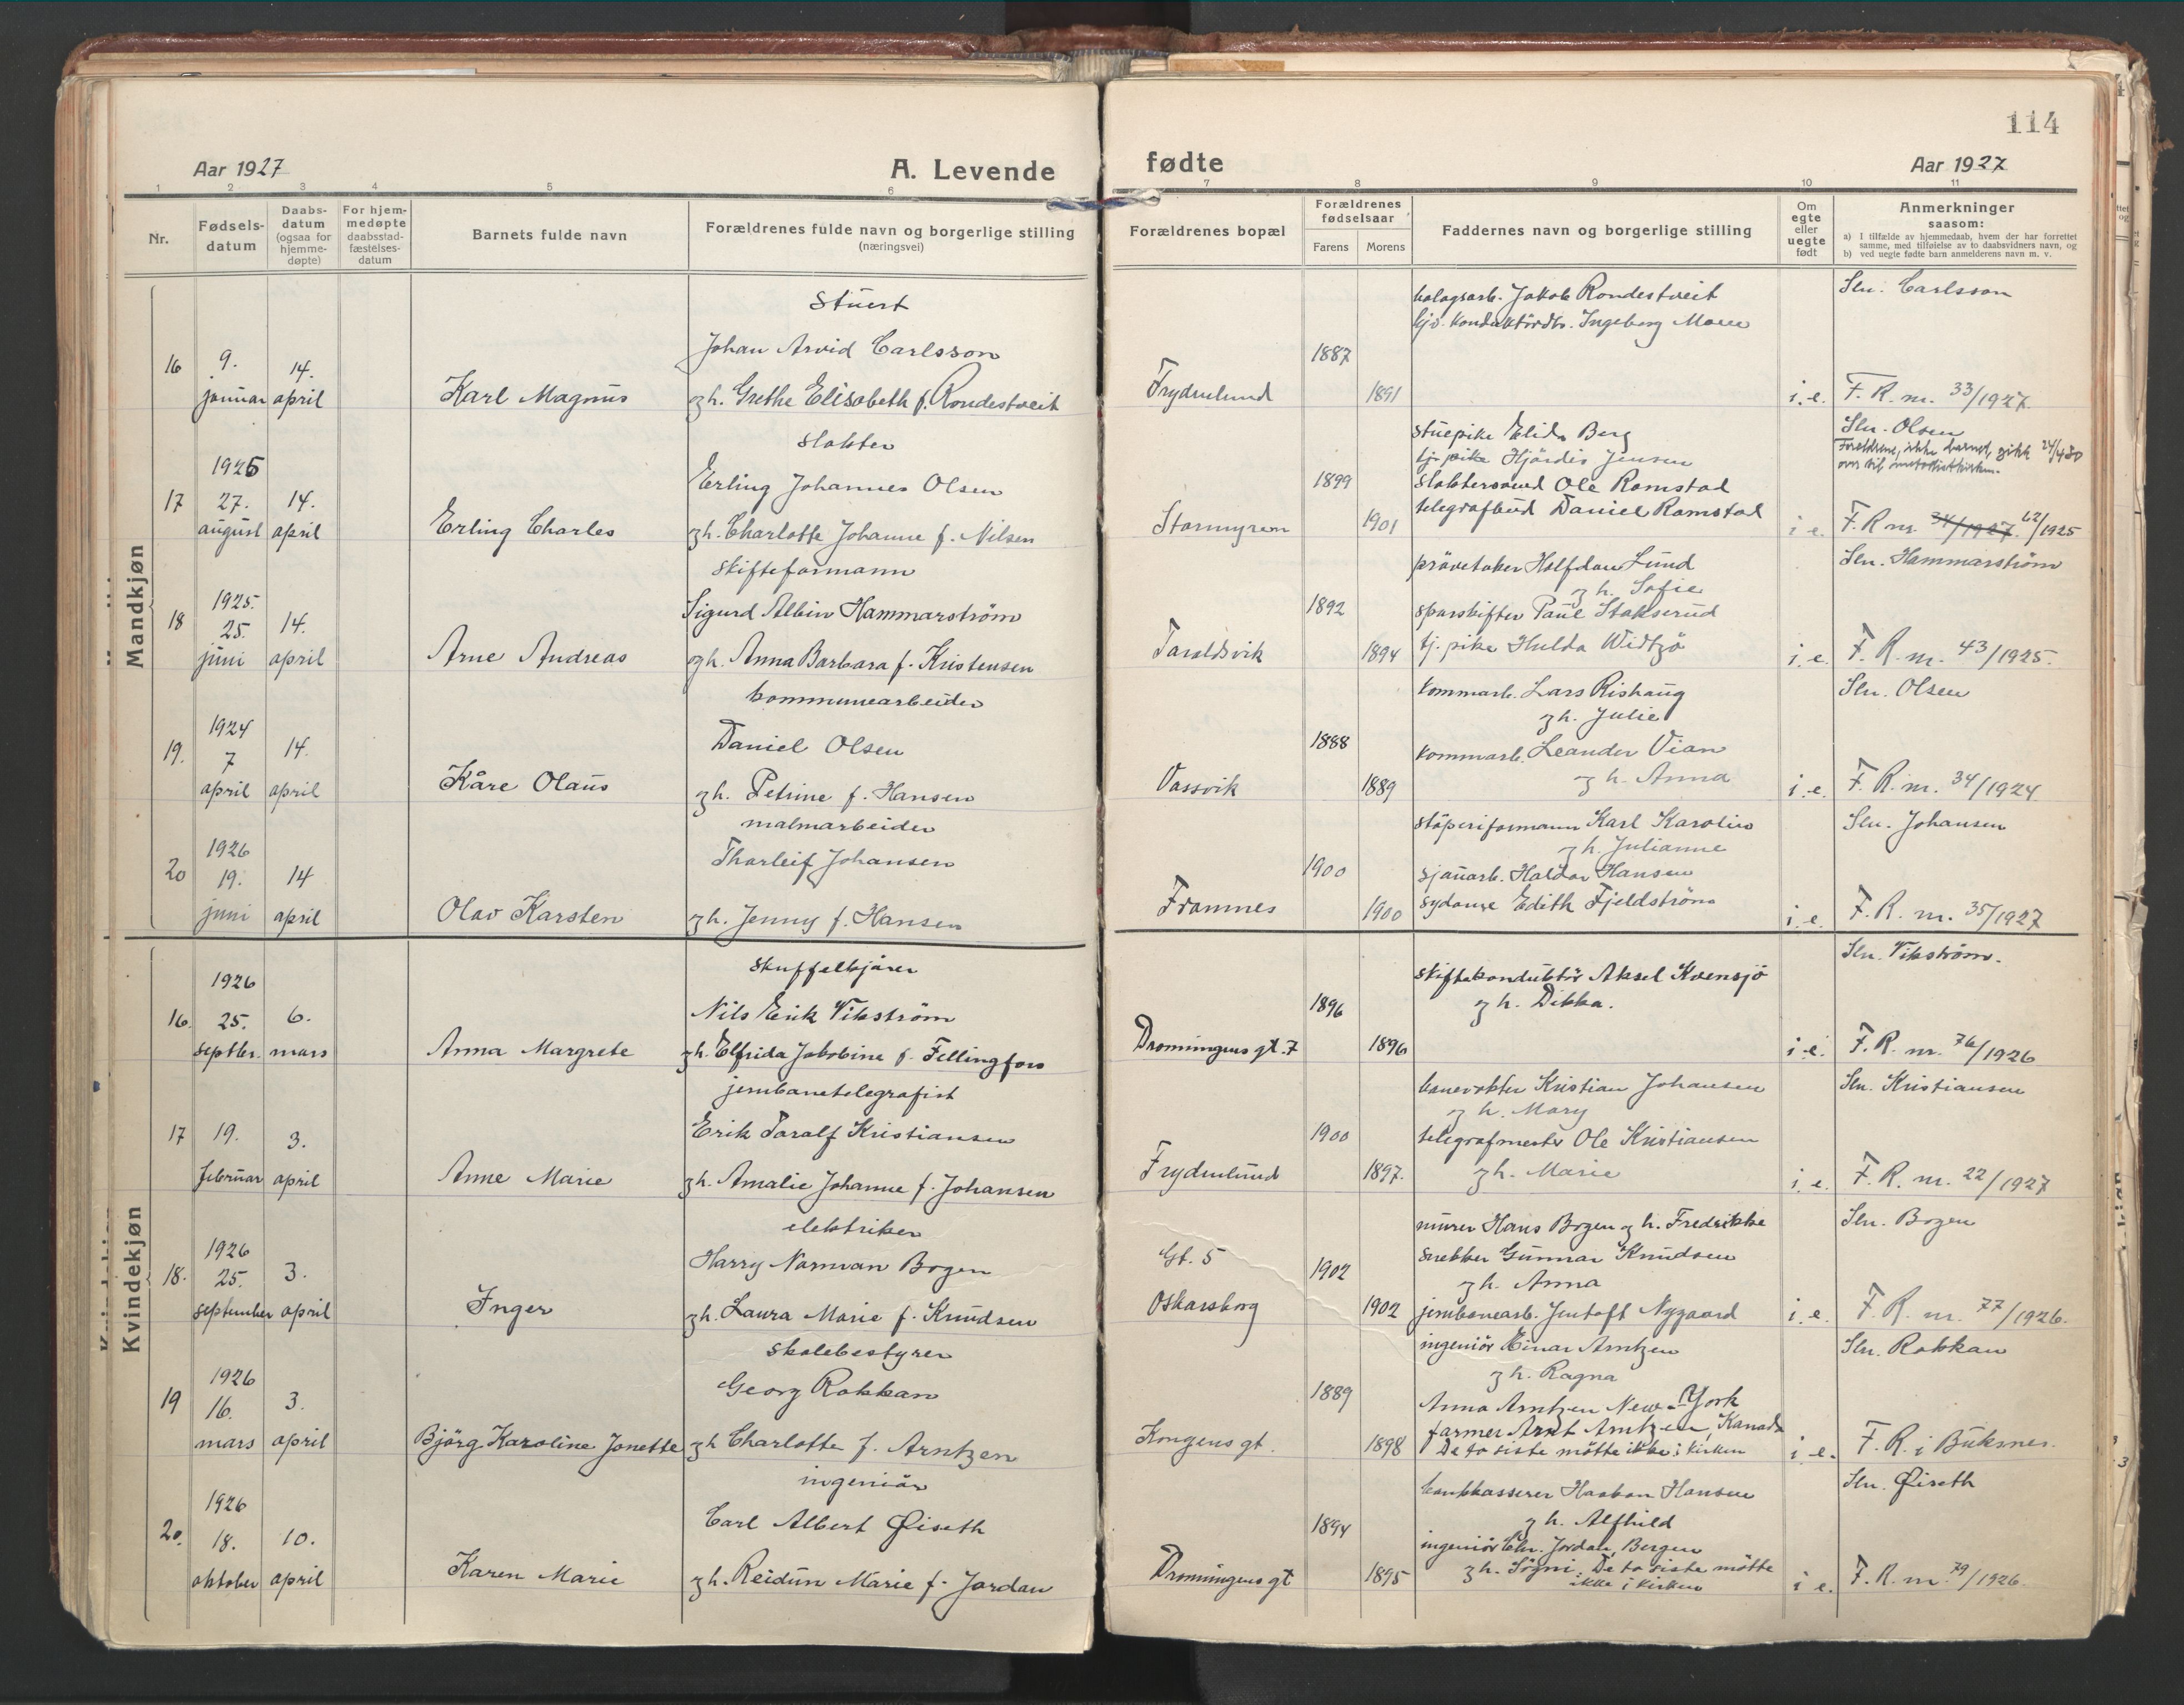 114
Aar 1927
A. Levende
fødte
Aar 1927
1 2 3 4 5 6 7 8 9 10 11
Nr.
Fødsels-
datum
Daabs-
datum
(ogsaa for
hjemme-
døpte)
For hjem-
medøpte
daabsstad-
fæstelses-
datum
Barnets fulde navn
Forældrenes fulde navn og borgerlige stilling
(næringsvei)
Forældrenes bopæl
Forældrenes
fødselsaar
Farens
Morens
Faddernes navn og borgerlige stilling
Om
egte
eller
uegte
født
Anmerkninger
saasom:
a) I tilfælde av hjemmedaab, hvem der har forrettet
samme, med tilføielse av to daabsvidners navn, og
b) ved uegte fødte barn anmelderens navn m. v.
Mandkjøn
16
9.
januar
14.
april
Karl Magnus
Stuert
Johan Arvid Carlsson
og h. Grethe Elisabeth f. Rondestveit
Frydenlund
1887
1891
Jakob Rondestveit
Ingeborg Moen
i. e.
Slu. Carlsson
F. R. nr. 33/1927.
17
1925
27.
august
14.
april
Erling Charles
slakter
Erling Johannes Olsen
og h. Charlotte Johanne f. Nilsen
Stormyren
1899
1901
stuepike Elida Berg
tj. pike Hjördis Jensen
slaktersvend Ole Ramstad
telegrafbud Daniel Ramstad
i e.
Slu. Olsen
Foreldrene, ikke barnet, gikk 24/4 30
over til metodistkirken.
F. R. nr. 34/1927. 62/1925
18
1925.
25.
juni
14.
april
Arne Andreas
skifteformann
Sigurd Albin Hammarström
og h. Anna Barbara f. Kristensen
Taraldsvik
1892
1894
prövetaker Halfdan Lund
og h. Sofie
sporskifter Paul Stakserud
tj. pike Hulda Widtzö
i. e.
Slu. Hammarström
F. R. nr. 43/1925.
19.
1924
7
april
14.
april
Kåre Olaus
kommunearbeider
Daniel Olsen
og h. Petrine f. Hansen
Vassvik
1888
1889
kommarb. Lars Rishaug
og h. Julie
kommarb. Leander Vian
og h. Anna
i. e.
Slu. Olsen
F. R. nr. 34/1924.
20
1926
19.
juni
14
april
Olav Karsten
malmarbeider
Thorleif Johansen
og h. Jenny f. Hansen
Framnes
1900
1900
støperiformann Karl Karolius
og h. Julianne
sjauarb. Haldor Hansen
sydame Edith Fjeldström
i. e.
Slu. Johansen
F. R. nr. 35/1927
Kvindekjøn
16.
1926
25.
septbr.
6.
mars
Anna Margrete
skuffelkjører
Nils Erik Vikström
og h. Elfrida Jakobine f. Fellingfors
Dronningens gt. 7
1896
1896
skiftekonduktör Aksel Kvensjö
og h. Dikka.
i. e.
Slu. Vikström.
F. R. nr. 76/1926
17
19.
februar
3.
april
Anne Marie
jernbanetelegrafist
Erik Toralf Kristiansen
og h. Amalie Johanne f. Johansen
Frydenlund
1900
1897.
banevokter Kristian Johansen
og h. Mary
telegrafmester Ole Kristiansen
og h. Marie
i. e.
Slu. Kristiansen
F. R. nr. 22/1927
18.
1926
25.
september
3.
april
Inger
elektriker
Harry Norman Bogen
og h. Laura Marie f. Knudsen
Gt. 5
Oskarsborg
1902
1902
murer Hans Bogen og h. Fredrikke
snekker Gunnar Knudsen
og h. Anna
jernbanearb. Jentoft Nygaard
i. e.
Slu. Bogen
F. R. nr. 77/1926.
19
1926
16.
mars
3.
april
Björg Karoline Jonette
skolebestyrer
Georg Rokkan
og h. Charlotte f. Arntzen
Kongens gt.
1889
1898
ingeniör Einar Arntzen
og h. Ragna
Anna Arntzen New-York
farmer Arnt Arntzen, Kanada
De to siste mötte ikke i kirken
i e.
Slu. Rokkan
F. R. i Buksnes.
20.
1926
18.
oktober
10.
april
Karen Marie
ingeniör
Carl Albert Øiseth
og h. Reidun Marie f. Jordan
Dronningens gt
1894
1895
bankkasserer Haakon Hansen
og h. Alfhild
ingeniör Chr. Jordan, Bergen
og h. Sögni. De to siste mötte
ikke i kirken
i e.
Slu. Øiseth
F. R. nr. 79/1926.